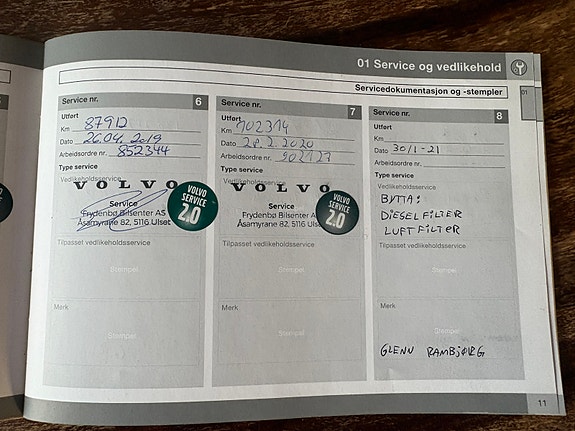 01 Service og vedlikehold
Servicedokumentasjon og -stempler
01
Service nr. 6
Utført
Km 87912
Dato 26.04.2019
Arbeidsordre nr. 852344
Type service
Vedlikeholdsservice
VOLVO
Service
Frydenbø Bilsenter AS
Åsamyrane 82, 5116 Ulset
VOLVO
SERVICE
2.0
Tilpasset vedlikeholdsservice
Stempel
Merk
Stempel
Service nr. 7
Utført
Km 102314
Dato 28.2.2020
Arbeidsordre nr. 902127
Type service
Vedlikeholdsservice
VOLVO
Service
Frydenbø Bilsenter A
Åsamyrane 82, 5116 Ulse
VOLVO
SERVICE
2.0
Tilpasset vedlikeholdsservice
Stempel
Merk
Stempel
Service nr. 8
Utført
Km
Dato 30/1-21
Arbeidsordre nr.
Type service
Vedlikeholdsservice
BYTTA:
DIESELFILTER
LUFTFILTER
Tilpasset vedlikeholdsservice
Stempel
Merk
Stempel
GLENN RAMBJØRG
11